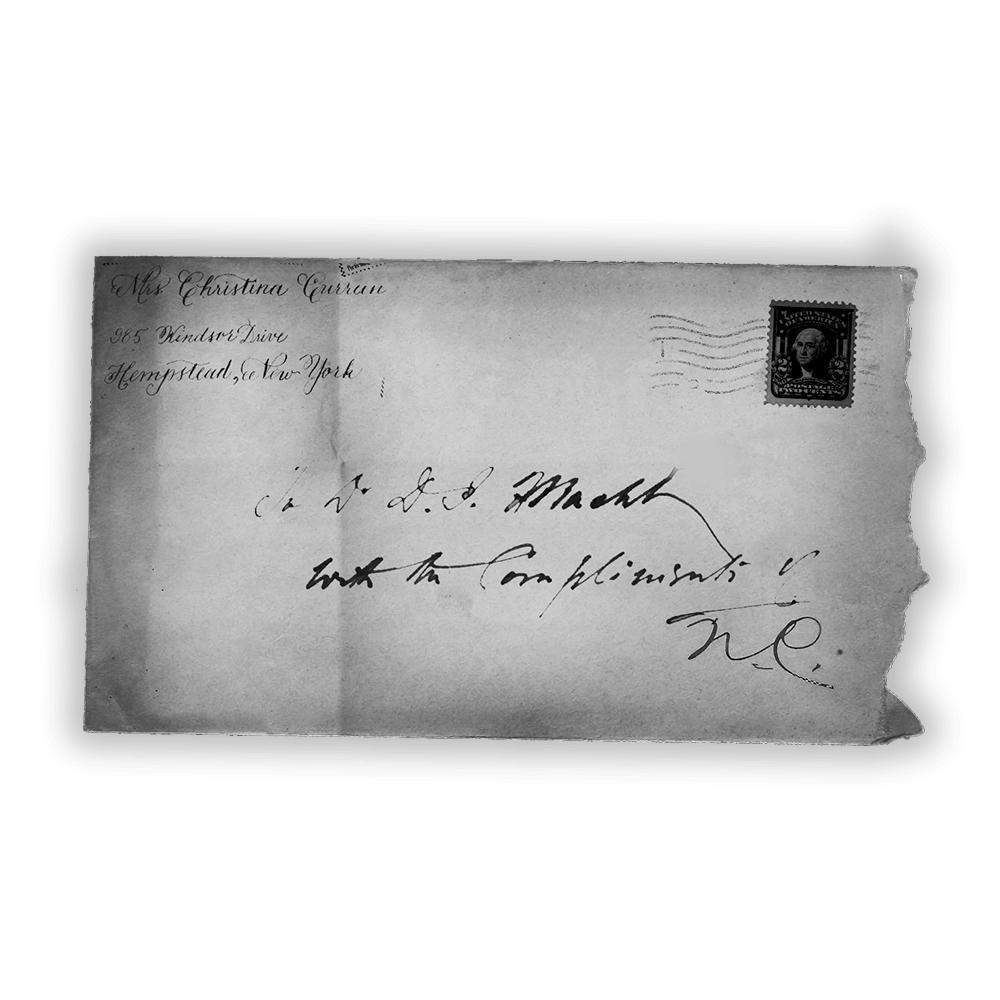 Mrs Christina Curran
985 Windsor Drive
Hempstead, New York
UNITED STATES
OF AMERICA
2 2
POSTAGE
TWO CENTS
To Dr D. I. Macht
with the Compliments of
N. C.